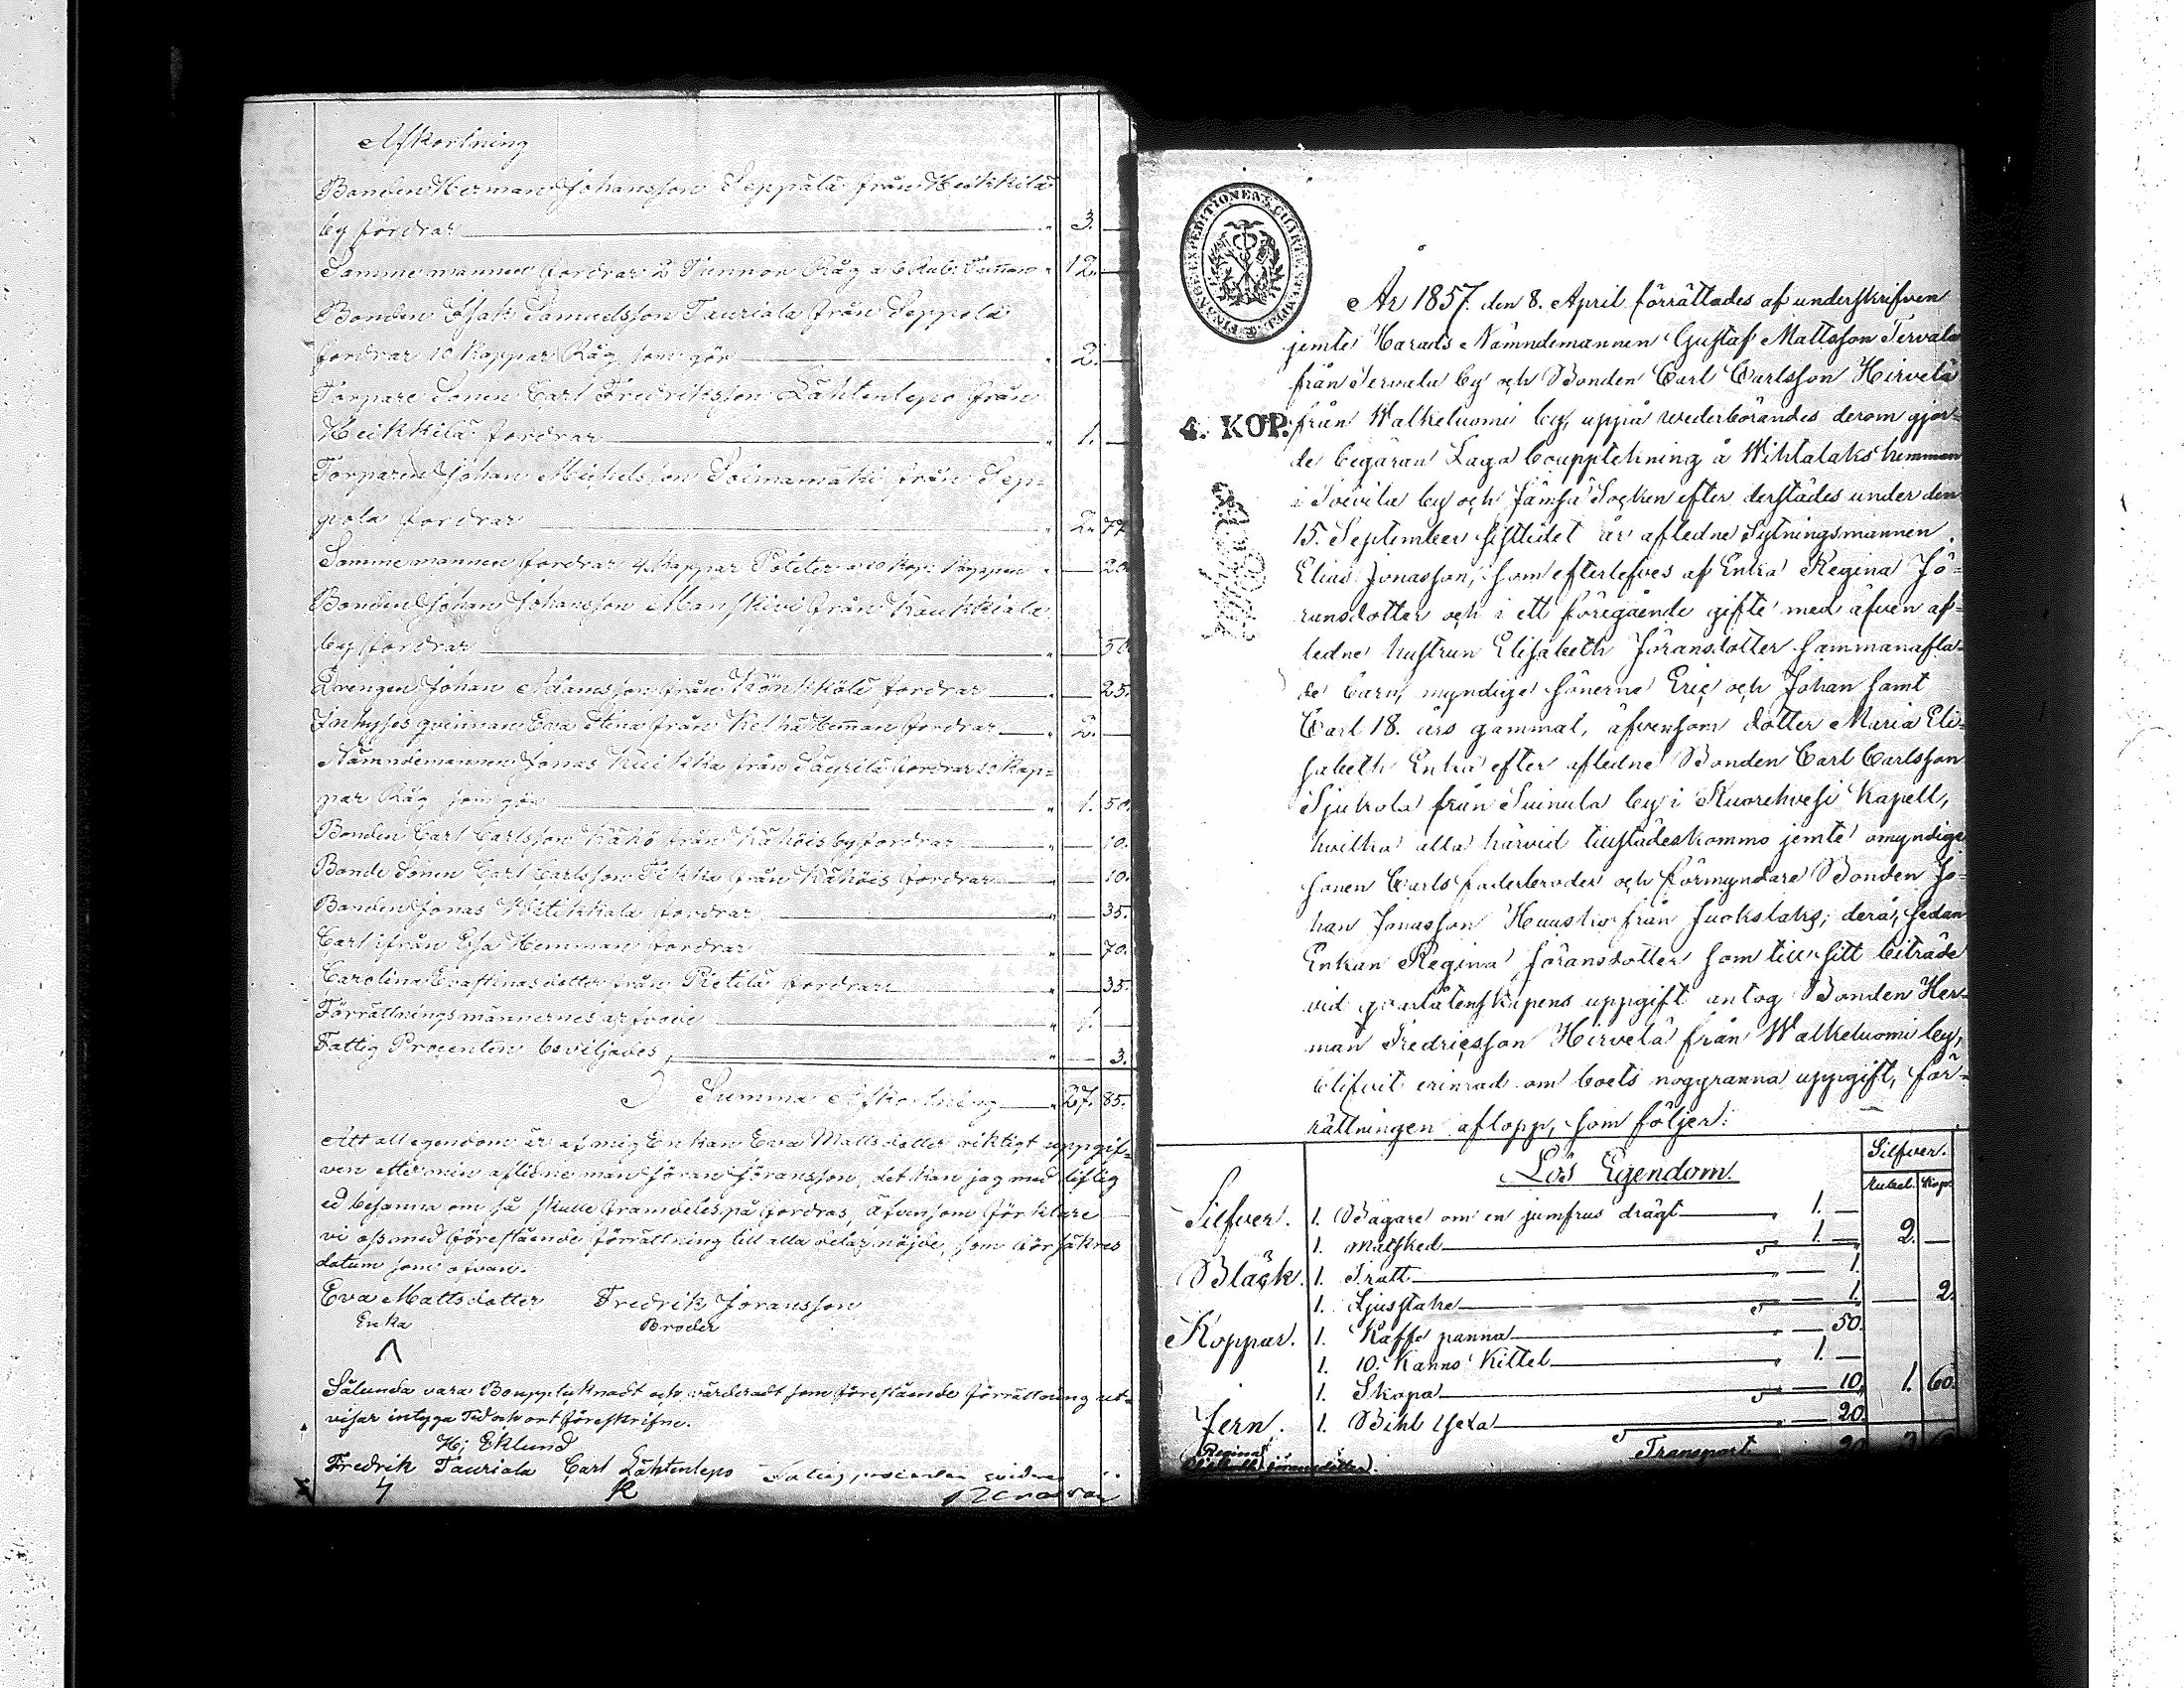 Afkortning
Bonden Herman Johansson Seppälä från Heikkilä
by fordrar " 3. —
Samme mannen fordrar 2 Tunnor Råg a 6 Rub: Tunnan " 12. —
Bonden Isak Samuelsson Tauriala från Seppola
fordrar 10 Kappar Råg som gör " 2. —
Torpare Sonen Carl Fredriksson Lähtenlepo från
Heikkilä fordrar " 1. —
Torparen Johan Michelsson Soimamäki från Sep=
pola fordrar " 2. 77
Samme mannen fordrar 4 Kappar Poteter a 10 Kop: Kappen " — 20
Bonden Johan Johansson Manskivi från Kaukkiala
by fordrar " — 50
Drengen Johan Adamsson från Könkkölä fordrar " — 25.
Inhyses qvinnan Eva Stina från Kelhä Heman fordrar " 2. —
Nämndemannen Jonas Kuikka från Säyrilä fordrar 10 Kap=
par Råg som gör " 1. 50.
Bonden Carl Carlsson Kähö från Kähöis by fordrar " — 10.
Bonde Sonen Carl Carlsson Tikka från Kähöis fordrar " — 10.
Bonden Jonas Witikkala fordrar " — 35.
Carl ifrån Esa Hemman fordrar " — 70.
Carolina Evastinasdotter från Pietilä fordrar " — 35.
Förrättningsmännernes arfvode " 1. —
Fattig Procenten beviljades " — 3.
Summa Afkortning " 27. 85.
Att all egendom är af mig Enkan Eva Mattsdotter riktigt uppgif=
ven efter min aflidne man Jöran Jöransson, det kan jag med liflig
ed besanna om så skulle framdeles på fordras, äfvensom förklare
vi oss med förestående förrättning till alla delar nöjde, som försäkres
datum som ofvan.
Eva Mattsdotter Fredrik Joransson
Enka Broder
Sålunda vara Bouppteknadt och värderadt som förestående förrättning ut=
visar intyga Tid och ort föreskrifne.
Hj Eklund
Fredrik Tauriala Carl Lähtenlepo
FINANCE EXPEDITIONENS CHARTÆ
4. KOP.
År 1857. den 8. April förrättades af underskrifven
jemte Härads Nämndemannen Gustaf Mattsson Tervala
från Tervala by och Bonden Carl Carlsson Hirvelä
från Walkeluomi by, uppå wederbörandes derom gjor=
de begäran Laga bouppteckning å Wihtalaks hemman
i Soivila by och Jämsä Socken efter derstädes under den
15. September sistledet år afledne Sytningsmannen
Elias Jonasson, som efterlefves af Enka Regina Jö=
ransdotter och i ett föregående gifte med äfven af=
ledne hustrun Elisabeth Jöransdotter sammanafla=
de barn, myndige sönerne Eric och Johan samt
Carl 18. års gammal, äfvensom dotter Maria Eli=
sabeth Enka efter afledne Bonden Carl Carlsson
Sjukola från Suinula by i Kuorehvesi Kapell,
hvilka alla härvid tillstädeskommo jemte omyndige
sonen Carls faderbroder och förmyndare Bonden Jo=
han Jonasson Huuskio från Juokslaks; derå, sedan
Enkan Regina Jöransdotter som till sitt biträde
vid qvarlåtenskapens uppgift antog Bonden Her=
man Fredricsson Hirvelä från Walkeluomi by,
blifvit erinrad om boets noggranna uppgift, för=
rättningen aflopp, som följer:
Lös Egendom. Silfver.
Rubel. Kop.
Silfver. 1. Bägare om en jumfrus drägt " 1. —
1. Matsked " 1. — 2. —
Bläck. 1. Tratt " — 1.
1. Ljusstake " — 1. — 2.
Koppar. 1. Kaffe panna " — 50.
1. 10. Kanno Kittel " 1. —
1. Skopa " — 10. 1. 60.
Jern. 1. Bihl yxa " — 20.
Transport